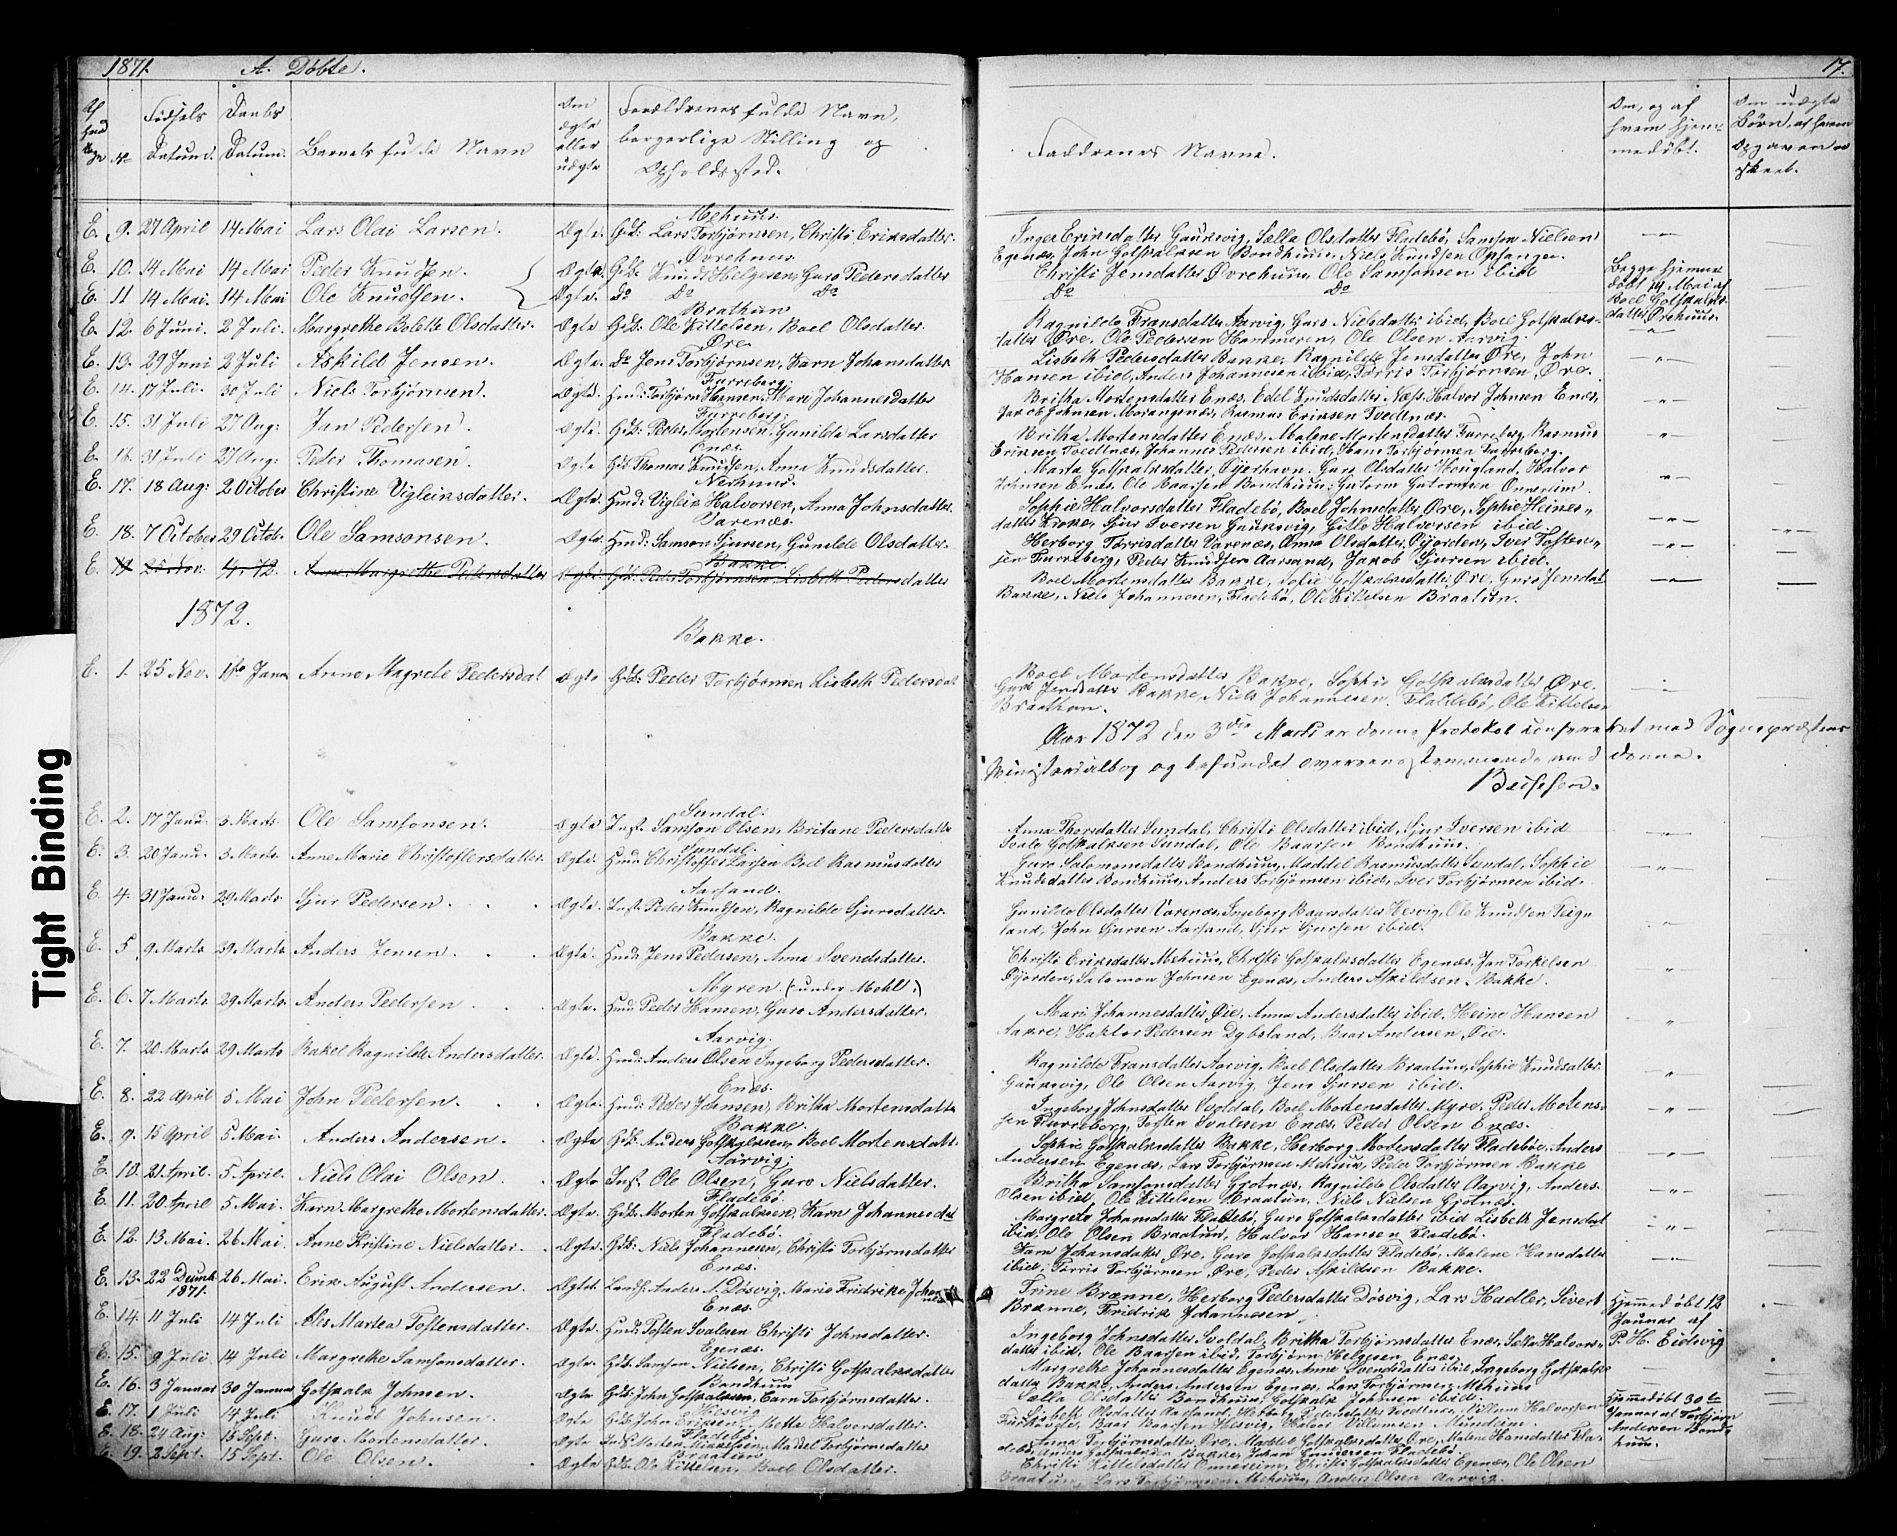 1871. A. Døbte.
17.
Fødsels Datum. Daabs Datum. Barnets fulde Navn
Om ægte eller uægte
Forældrenes fulde Navn, borgerlige Stilling og Opholdssted.
Faddrenes Navne.
Om, og af hvem hjem-medøbt.
Om uægte Børn, af hvem Opgaven er skeet.
Mehuus.
E. 9. 27 April 14 Mai Lars Olai Larsen. Ægte Gdb: Lars Torbjørnsen, Christi Eriksdatter.
Inger Eriksdatter Gauksvig, Sælla Olsdatter Fladebø, Samson Nielsen
Egenæs, John Gotskalksen Bondhuus, Niels Knudsen Opsanger.
Ørehuus
E. 10. 14 Mai 14 Mai Peder Knudsen. Ægte Gdb: Knud Helgesen, Guro Pedersdatter
Christi Jensdatter Ørehuus, Ole Samsonsen ibid
E. 11 14 Mai. 14 Mai Ole Knudsen. Ægte. do Do Do
Do Do
Begge hjemme-
døbt 14 Mai af
Boel Gotskalks-
datter Ørehuus.
Brathun
E. 12. 6 Juni. 2 Juli. Margrethe Bolette Olsdatter. Ægte Gdb: Ole Kittelsen, Boel Olsdatter.
Ragnilde Fransdatter Aarvig, Guro Nielsdatter ibid, Boel Gotskalks-
datter Øre, Ole Pedersen Hammeren, Ole Olsen Aarvig.
Øre
E. 13. 29 Juni 2 Juli Askild Jensen. Ægte. do Jens Torbjørnsen, Karn Johansdatter
Lisbeth Pedersdatter Bakke, Ragnilde Jensdatter Øre, John
Hansen ibid, Anders Johannesen ibid, Torris Torbjørnsen, Øre.
Furreberg:
E. 14. 17 Juli. 30 Juli Niels Torbjørnsen. Ægte. Hmd: Torbjørn Hansen, Mari Johannesdatter
Britha Mortensdatter Enæs, Edel Knudsdatter Næss, Halvor Johnsen Enæs,
Jacob Johnsen Morangsnæs, Rasmus Eriksen Tvedtnæs.
Furreberg:
E. 15. 31 Juli 27 Aug: Jan Pedersen. Ægte. Gdb: Peder Mortensen, Gunilda Larsdatter
Britha Mortensdatter Enæs, Malene Mortensdatter Furreberg, Rasmus
Eriksen Tvedtnæs, Johannes Pedersen ibid, Hans Torbjørnsen Furreberg.
Enæs.
E. 16. 31 Juli 27 Aug: Peder Thomasen. Ægte Gdb: Thomas Knudsen, Anna Knudsdatter.
Marta Gotskalksdatter, Øyerhavn, Guro Olsdatter Hougland, Halvor
Johnsen Enæs, Ole Baarsen Bondhuus, Gutorm Gutormsen Onnereim.
Nerhuus.
E. 17. 18 Aug: 2 October Christine Vigleiksdatter. Ægte. Hmd: Vigleik Halvorsen, Anna Johnsdatter.
Sophie Halvorsdatter Fladebø, Boel Johnsdatter Øre, Sophie Heines-
datter Kroke, Sjur Iversen Gauksvig, Gitle Halvorsen ibid.
Varenæs.
E. 18. 7 October 29 Octob. Ole Samsonsen. Ægte. Hmd: Samson Sjursen, Gunilde Olsdatter.
Herborg Torrisdatter Varenæs, Anna Olsdatter Øyjorden, Iver Tosten-
sen Furreberg, Peder Knudsen Aarsand, Jakob Sjursen ibid.
Bakke.
E. 19 25 Nov. 1/1, 72. Ane Margrethe Pedersdatter Ægte Gdb. Peder Torbjørnsen, Lisbeth Pedersdatter
Boel Mortensdatter Bakke, Sofie Gotskalksdatter Øre, Guro Jensdat
Bakke, Niels Johannesen, Fladebø, Ole Kittelsen Braatun.
1872.
Bakke.
E. 1. 25 Nov. 1ste Janu Anne Magrete Pedersdat Ægte Gdb: Peder Torbjørnsen Lisbeth Pedersdat
Boel Mortensdatter Bakke, Sophie Gotskalksdatter Øre.
Guro Jensdatter Bakke, Niels Johannesen Fladebø, Ole Kittelsen
Braathun.
Aar 1872 den 3die Marts er denne Protokol confereret med Sognepræstens
Ministerialbog og befundet overeensstemmende med denne.
Sundal.
E. 2. 17 Janu. 3 Marts Ole Samsonsen. Ægte Inst. Samson Olsen, Britane Pedersdatter
Anna Thorsdatter Sundal, Christi Olsdatter ibid, Sjur Iversen ibid
Svale Gotskalksen Sundal, Ole Baarsen Bondhuus.
Sundal.
E. 3. 20 Janu. 3 Marts. Anne Marie Christoffersdatter. Ægte. Hmd. Christoffer Larsen Boel Rasmusdatter
Guro Salomonsdatter Bondhuus, Maddel Rasmusdatter Sundal, Sophie
Knudsdatter Bondhuus, Anders Torbjørnsen ibid, Iver Torbjørnsen ibid.
Aarsand.
E. 4. 31 Janu. 29 Marts. Sjur Pedersen. Ægte. Inst. Peder Knudsen, Ragnilde Sjursdatter.
Gunilde Olsdatter Varenæs, Ingeborg Baarsdatter Hesvig, Ole Knudsen Teign-
land, John Sjursen Aarsand, Sjur Sjursen ibid.
Bakke.
E. 5 9 Marts 29 Marts Anders Jensen. Ægte. Hmd: Jens Pedersen, Anna Svendsdatter.
Christi Eriksdatter Mehuus, Christi Gotskalksdatter Egenæs, Jan Torkelsen
Øyjorden, Salomon Johnsen Egenæs, Anders Askildsen, Bakke.
Myren (under Mehl.)
E. 6. 7 Marts 29 Marts. Anders Pedersen. Ægte. Hmd: Peder Hansen, Guro Andersdatter.
Mari Johannesdatter Øie, Anna Andersdatter ibid, Heine Hansen
Aakre, Haktor Pedersen Dybsland, Baar Andersen, Øie.
Aarvig.
E. 7. 20 Marts 29 Marts Rakel Ragnilde Andersdatter. Ægte. Hmd: Anders Olsen Ingeborg Pedersdatter.
Ragnilde Fransdatter Aarvig, Boel Olsdatter Braatun, Sophie Knudsdatter
Gauksvig, Ole Olsen Aarvig, Jens Sjursen ibid.
Enæs.
E. 8. 22 April 5 Mai John Pedersen. Ægte. Hmd: Peder Johnsen, Britha Mortensdatter
Ingeborg Johnsdatter Svoldal, Boel Mortensdatter Myre, Peder Mortens-
sen Furreberg, Tosten Svalesen Enæs, Peder Olsen Enæs.
Bakke.
E. 9. 15 April 5 Mai. Anders Andersen. Ægte Gdb. Anders Gotskalksen, Boel Mortensdatt.
Sophie Gotskalksdatter Bakke, Herborg Mortensdatter Fladebøe, Anders
Andersen Egenæs, Lars Torbjørnsen Mehuus, Peder Torbjørnsen Bakke
Aarvig:
E. 10. 21 April. 5 April. Niels Olai Olsen. Ægte Inst. Ole Olsen, Guro Nielsdatter.
Britha Samsonsdatter Grotnæs, Ragnilde Olsdatter Aarvig, Anders
Olsen ibid, Ole Kittelsen Braatun, Niels Nielsen Grotnæs.
Fladebø
E. 11. 20 April 5 Mai. Karn Margrethe Mortensdatter. Ægte. Gdb: Morten Gotskalksen, Karn Johannesdat
Margrete Johansdatter Fladebø, Guro Gotskalksdatter ibid Lisbeth Jensdat
ibid. Ole Olsen Braatun, Halvor Hansen Fladebø.
Fladebø.
E. 12. 13 Mai. 26 Mai. Anne Kristine Nielsdatter. Ægte. Gdb: Niels Johannesen, Christi Torbjørnsdatter
Karn Johansdatter Øre, Guro Gotskalksdatter Fladebø, Malene Hansdatter
ibid, Torris Torbjørnsen Øre, Peder Askildsen Bakke.
Enæs.
E. 13. 22 Decmb. 1871. 26 Mai. Erik August Andersen. Ægte. Landh. Anders N. Døsvig, Marie Fridrike Johan
Trine Brænne, Herborg Pedersdatter Døsvig, Lars Hadler, Sivert
Brænne, Fridrik Johannesen
Hjemmedøbt 12
Januar af
P. H. Eidsvig
Enæs.
E. 14. 11 Juli 14 Juli Als Martea Tostensdatter. Ægte. Hmd: Tosten Svalesen Christi Johnsdatter.
Ingeborg Johnsdatter Svoldal, Britha Torbjørnsdatter Enæs, Sella Halvors-
datter ibid, Ole Baarsen ibid, Torbjørn Helgesen Enæs.
Egenæs.
E. 15. 9 Juli 14 Juli Margrethe Samsonsdatter. Ægte Gdb: Samson Nielsen, Christi Gotskalksdatter
Margrethe Johannesdatter Egenæs, Anne Svendsdatter ibid, Ingeborg Gotskalks-
datter Bakke, Anders Andersen Egenæs, Lars Torbjørnsen Mehuus
Bondhuus
E. 16. 3 Januar 30 Januar Gotskalk Johnsen. Ægte Gdb: John Gotskalksen, Karn Torbjørnsdatter
Sælla Olsdatter Bondhuus, Gotskalk Johnsen ibid.
Hjemmedøbt 30te
Januar af Torbjørn
Andersen Bond-
huus.
Hesvig
E. 17. 1 Juli 14 Juli Knud Johnsen. Ægte Gdb: John Eriksen, Mette Halvorsdatter.
Fladebø.
E. 18. 24 Aug: 15 Sept. Guro Mortensdatter. Ægte Inst. Morten Mikkelsen, Maddel Torbjørnsdatter
Anna Torbjørnsdatter Øre, Maddel Gotskalksdatter Øre, Malene Hansdatter Fla-
Braatun
E. 19. 2 Sept. 15 Sept. Ole Olsen. Ægte. Gdb. Ole Kittelsen, Boel Olsdatter.
Christi Kittelsdatter Onnereim, Christi Gotskalksdatter Egenæs, Ole Olsen
Braatun, Lars Torbjørnsen Mehuus, Anders Olsen Aarvig.
Tight Binding